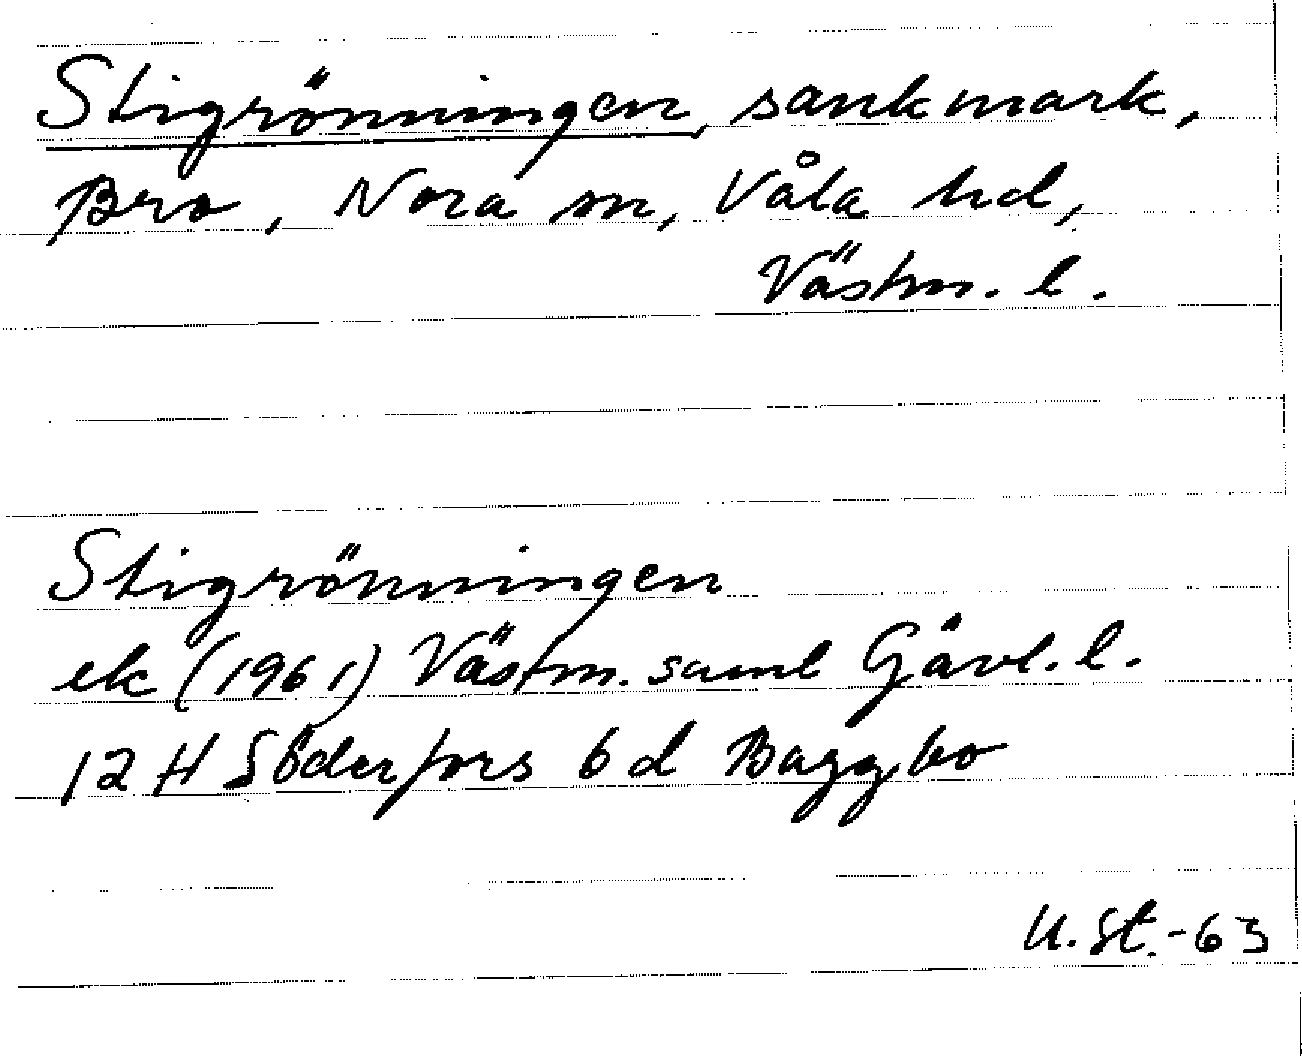 Stigrönningen, sankmark,
Bro, Nora sn, Våla hd,
Västm. l.
Stigrönningen
ek (1961) Västm. saml Gävl. l.
12 H Söderfors 6 d Baggbo
U. St. -63